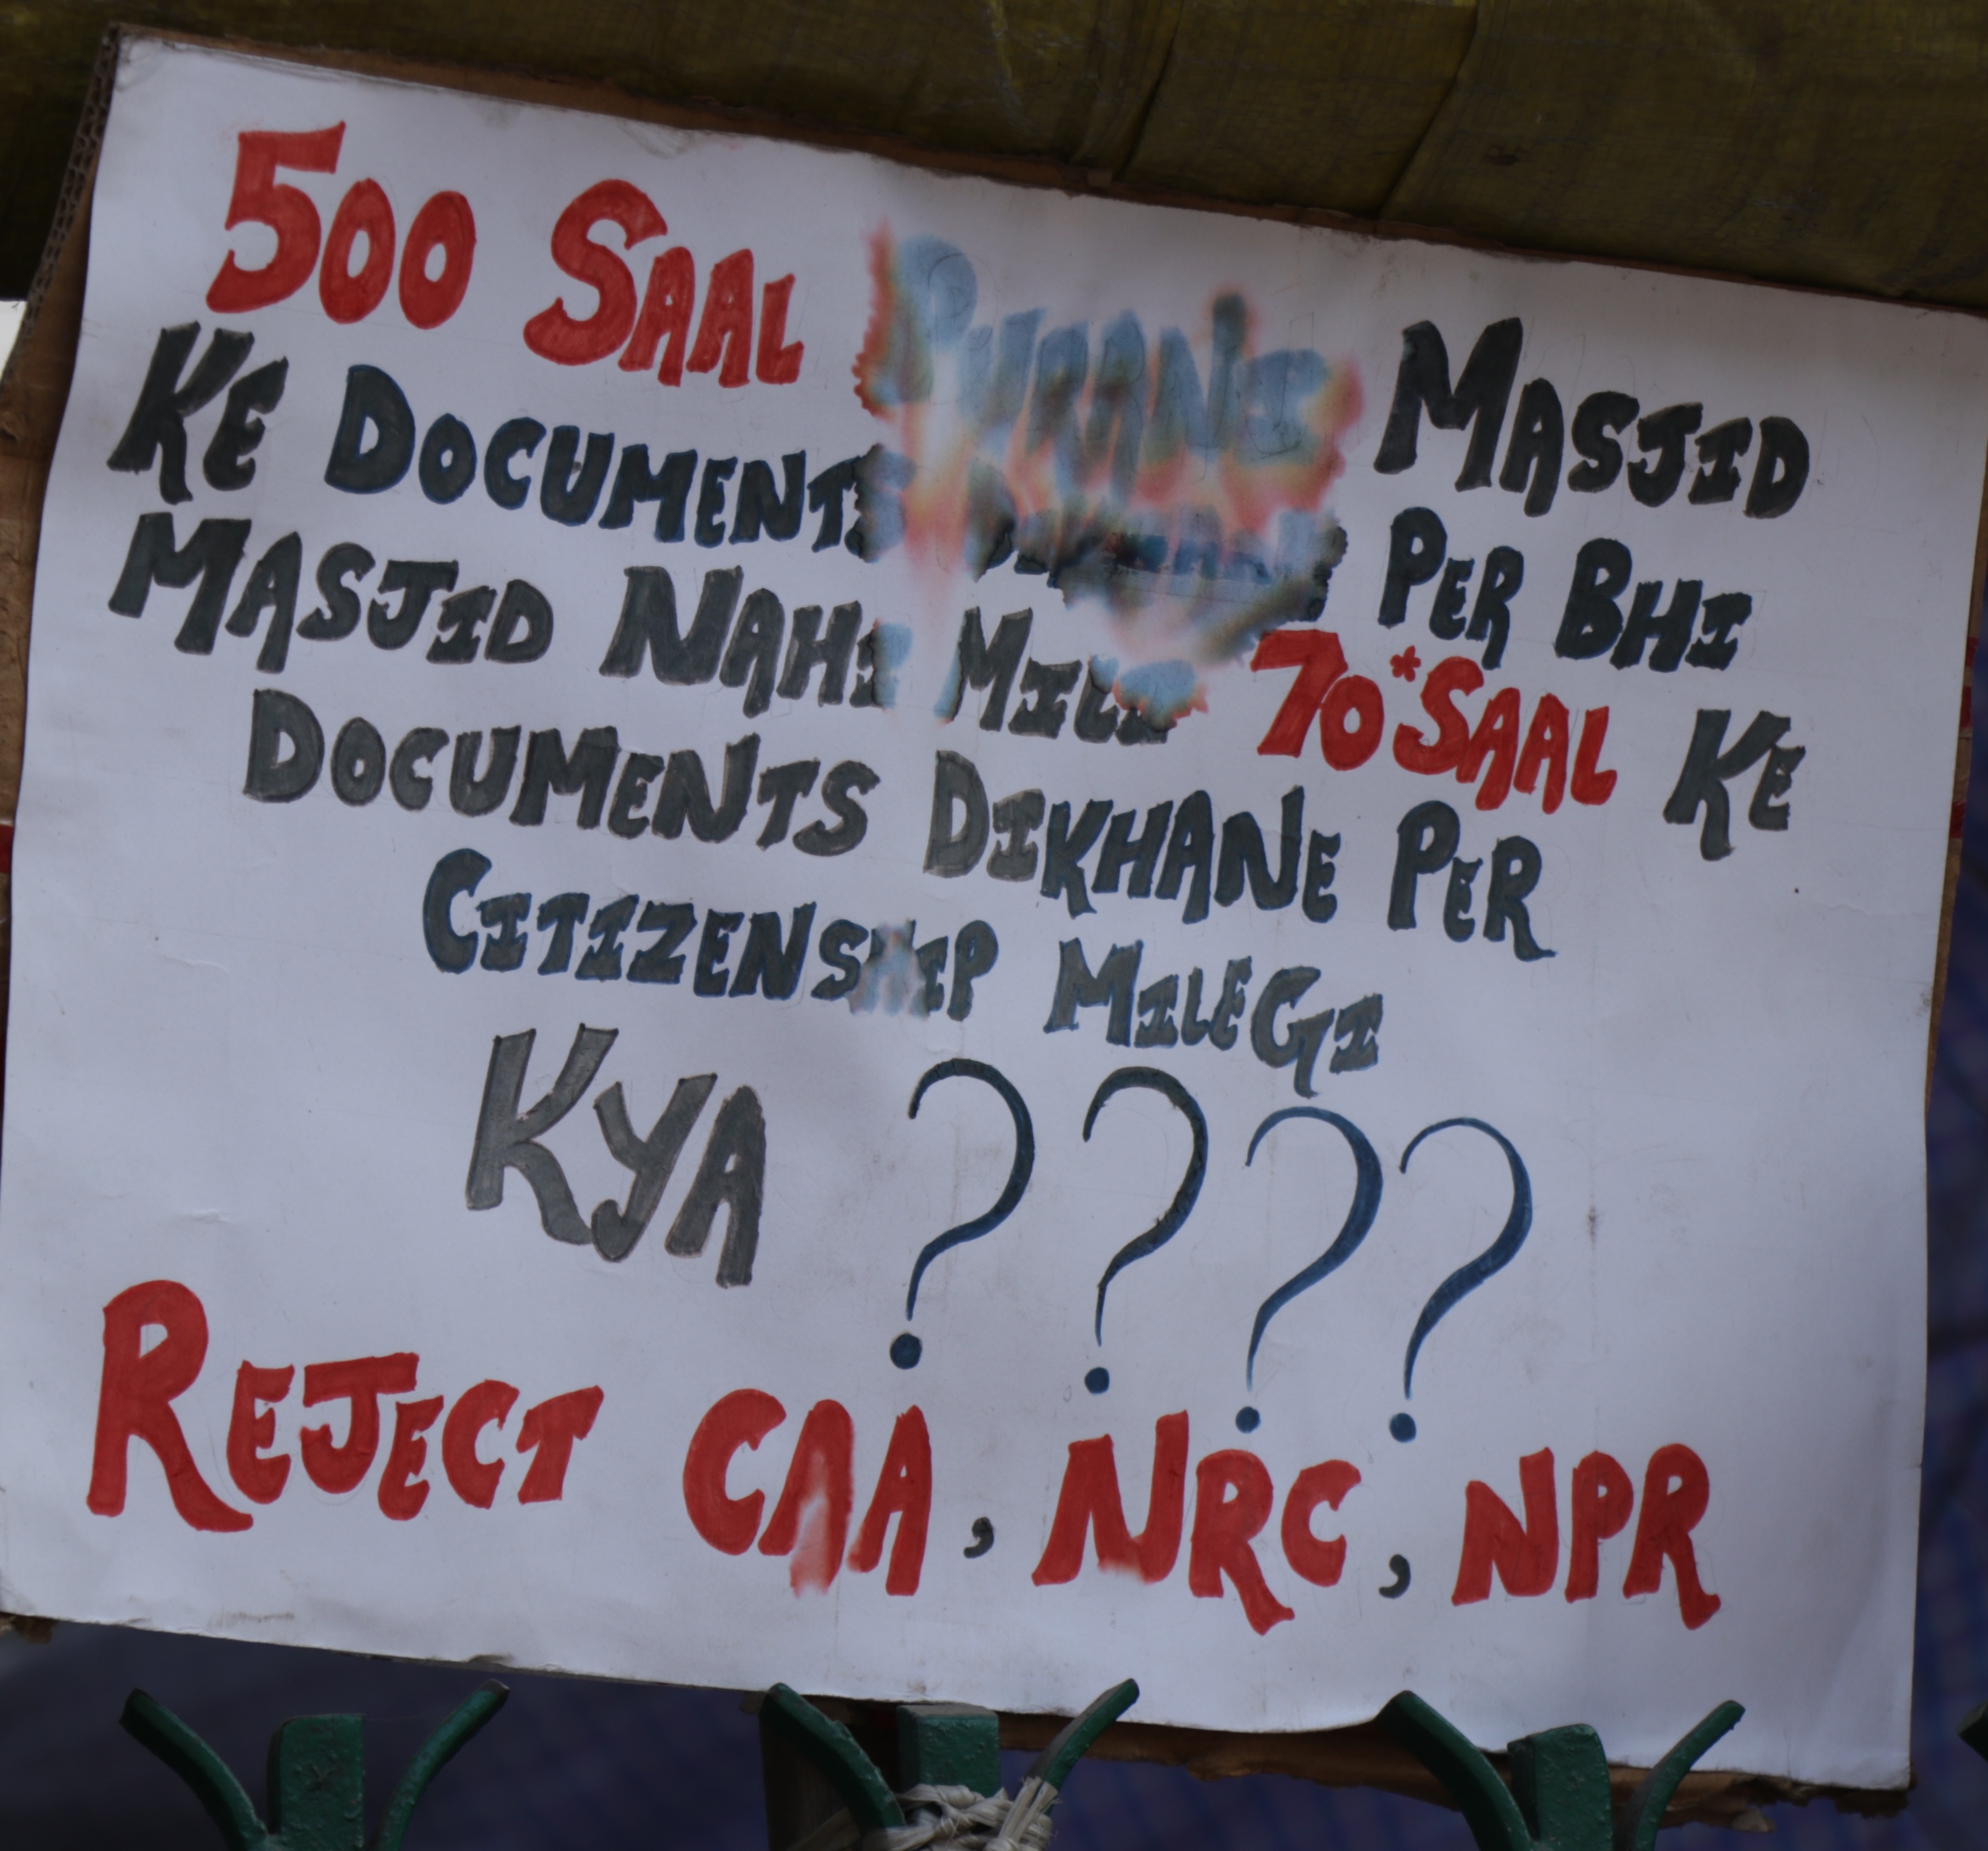 500 SAAL PURANE MASJID
KE DOCUMENTS DIKHANE PER BHI
MASJID NAHI MILI 70*SAAL KE
DOCUMENTS DIKHANE PER
CITIZENSHIP MILEGI
KYA ????
REJECT CAA, NRC, NPR